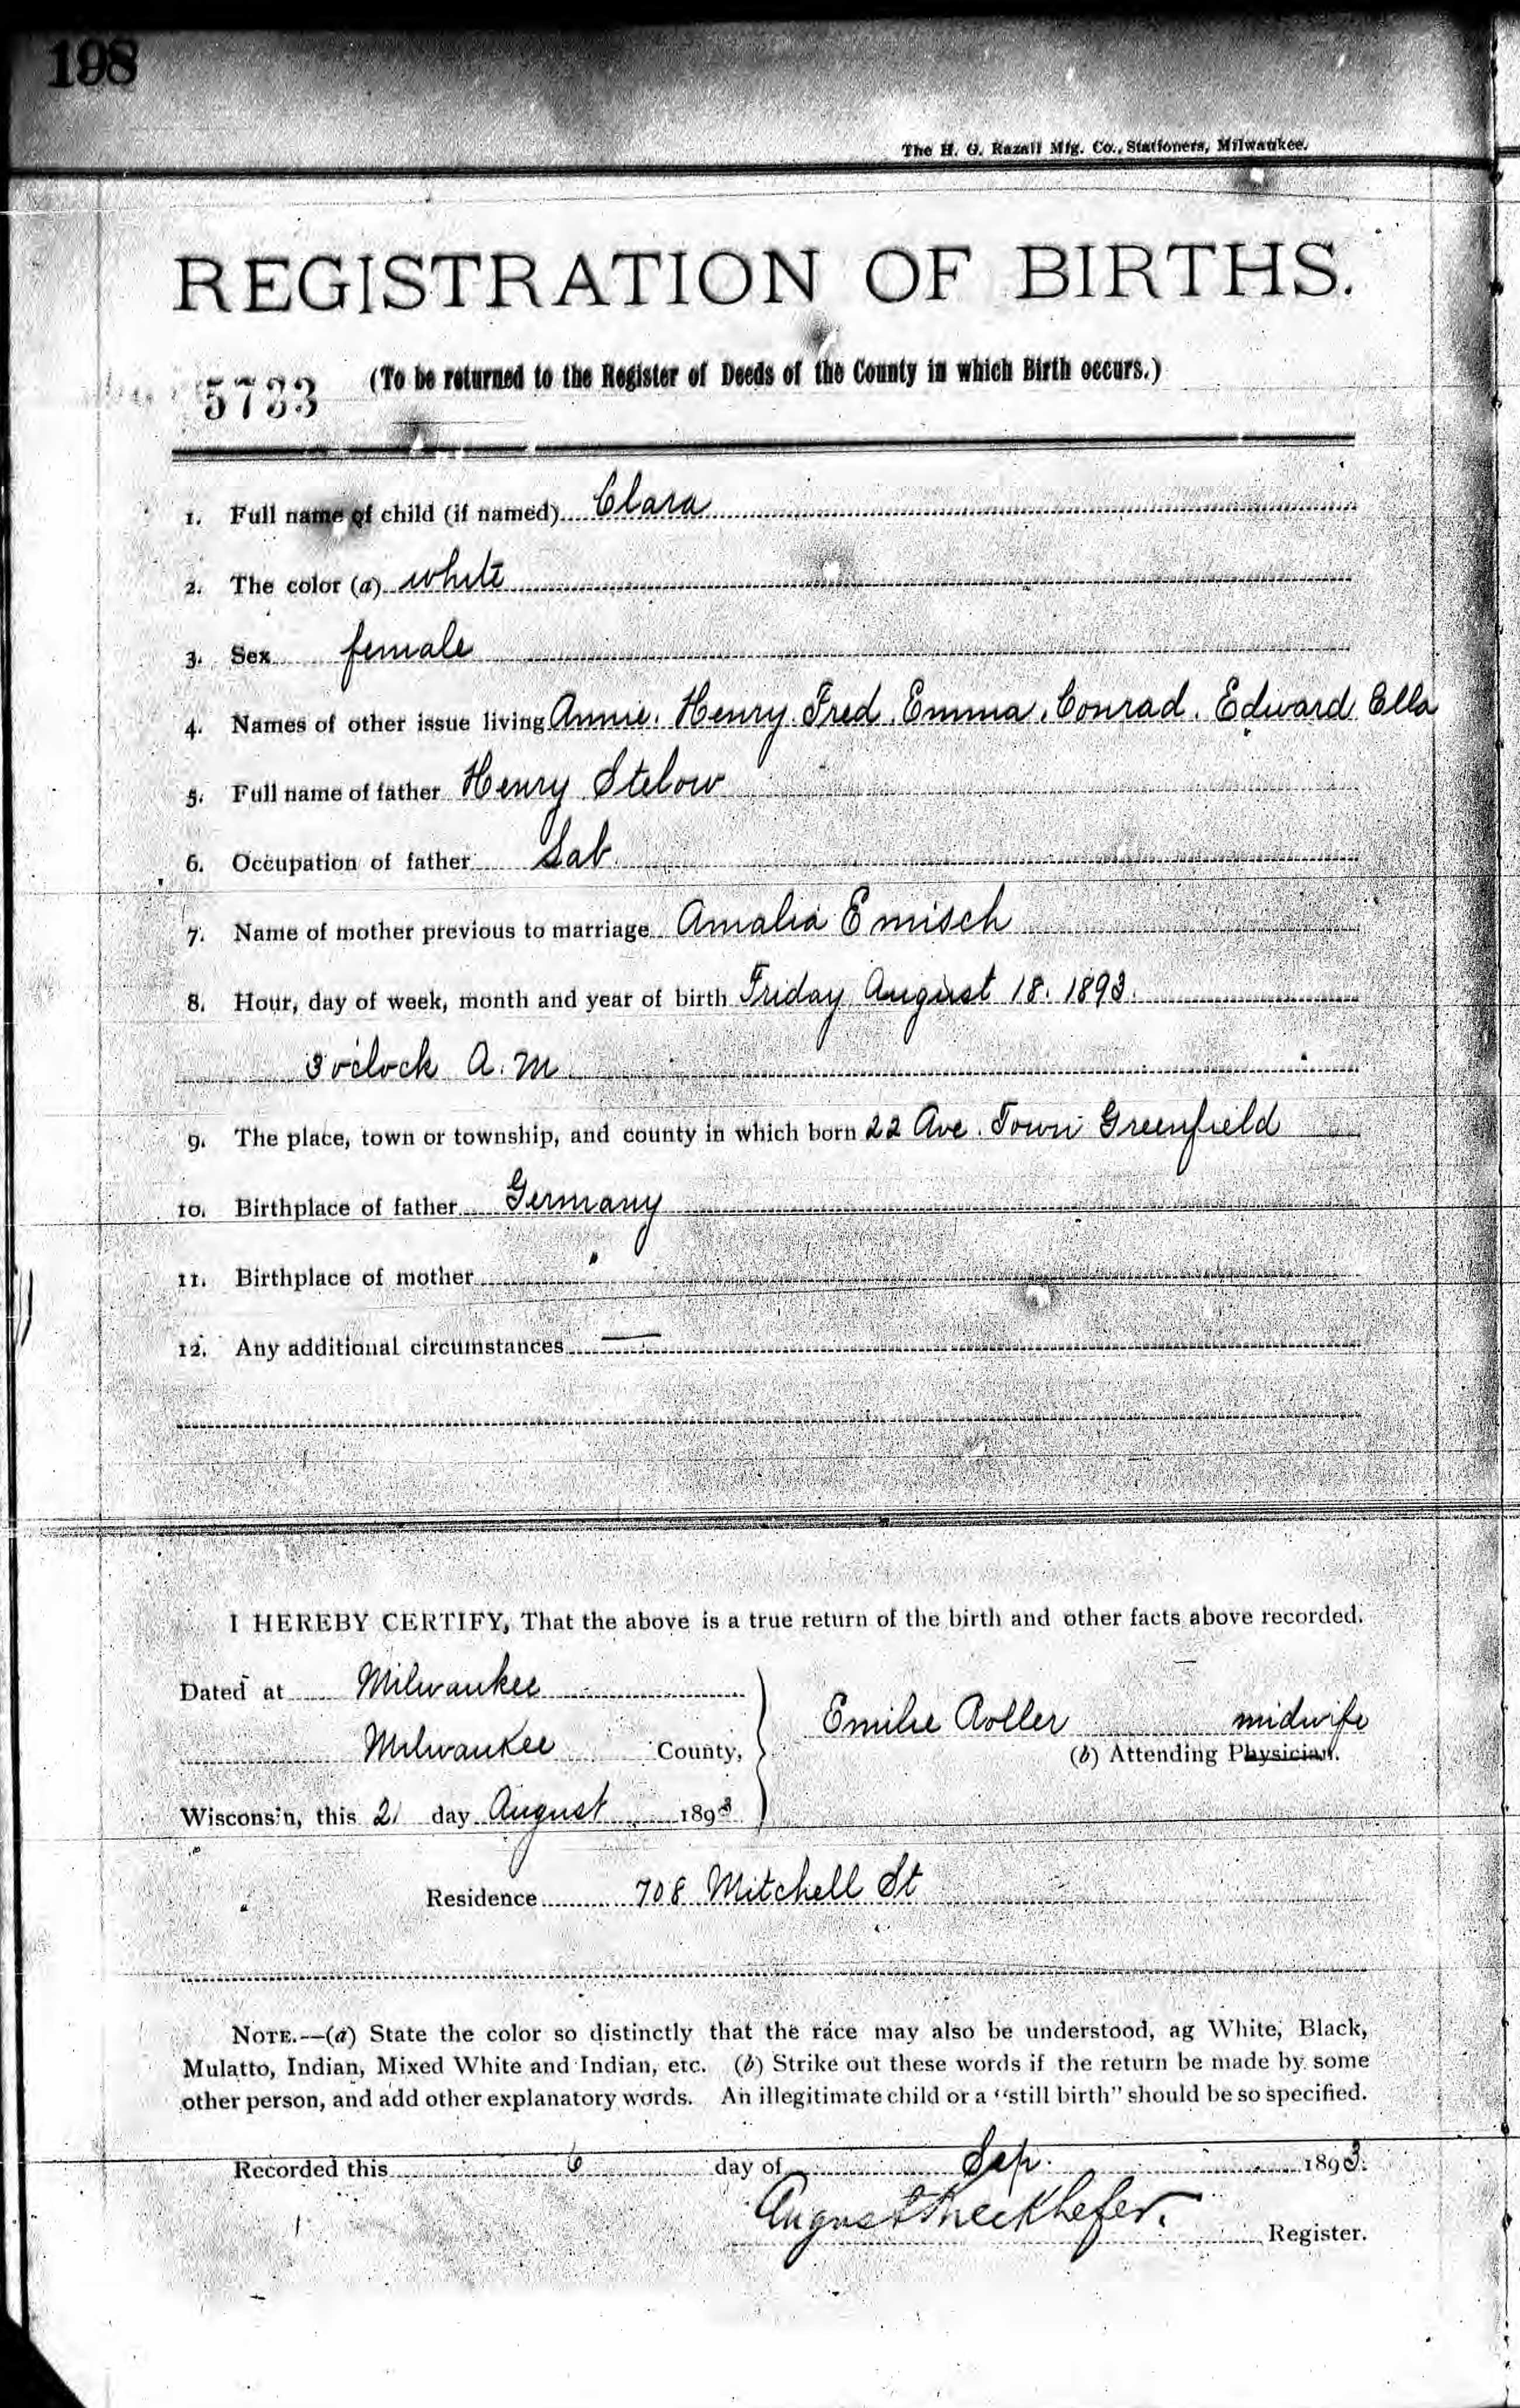 198
The H. G. Razall Mfg. Co., Stationers, Milwaukee.
REGISTRATION OF BIRTHS.
5733
(To be returned to the Register of Deeds of the County in which Birth occurs.)
1. Full name of child (if named) Clara
2. The color (a) white
3. Sex female
4. Names of other issue living Annie. Henry. Fred. Emma. Conrad. Edward Ella
5. Full name of father Henry Stelow
6. Occupation of father Lab.
7. Name of mother previous to marriage Amalia Emisch
8. Hour, day of week, month and year of birth Friday August 18. 1893.
3 oclock A. M.
9. The place, town or township, and county in which born 22 Ave. Town Greenfield
10. Birthplace of father Germany
11. Birthplace of mother "
12. Any additional circumstances —
I HEREBY CERTIFY, That the above is a true return of the birth and other facts above recorded.
Dated at Milwaukee
Emilie Roller midwife
Milwaukee County,
(b) Attending Physician.
Wisconsin, this 21 day August 1893
Residence 708 Mitchell St
NOTE.—(a) State the color so distinctly that the race may also be understood, as White, Black,
Mulatto, Indian, Mixed White and Indian, etc. (b) Strike out these words if the return be made by some
other person, and add other explanatory words. An illegitimate child or a "still birth" should be so specified.
Recorded this 6 day of Sep. 1893.
August Kieckhefer. Register.